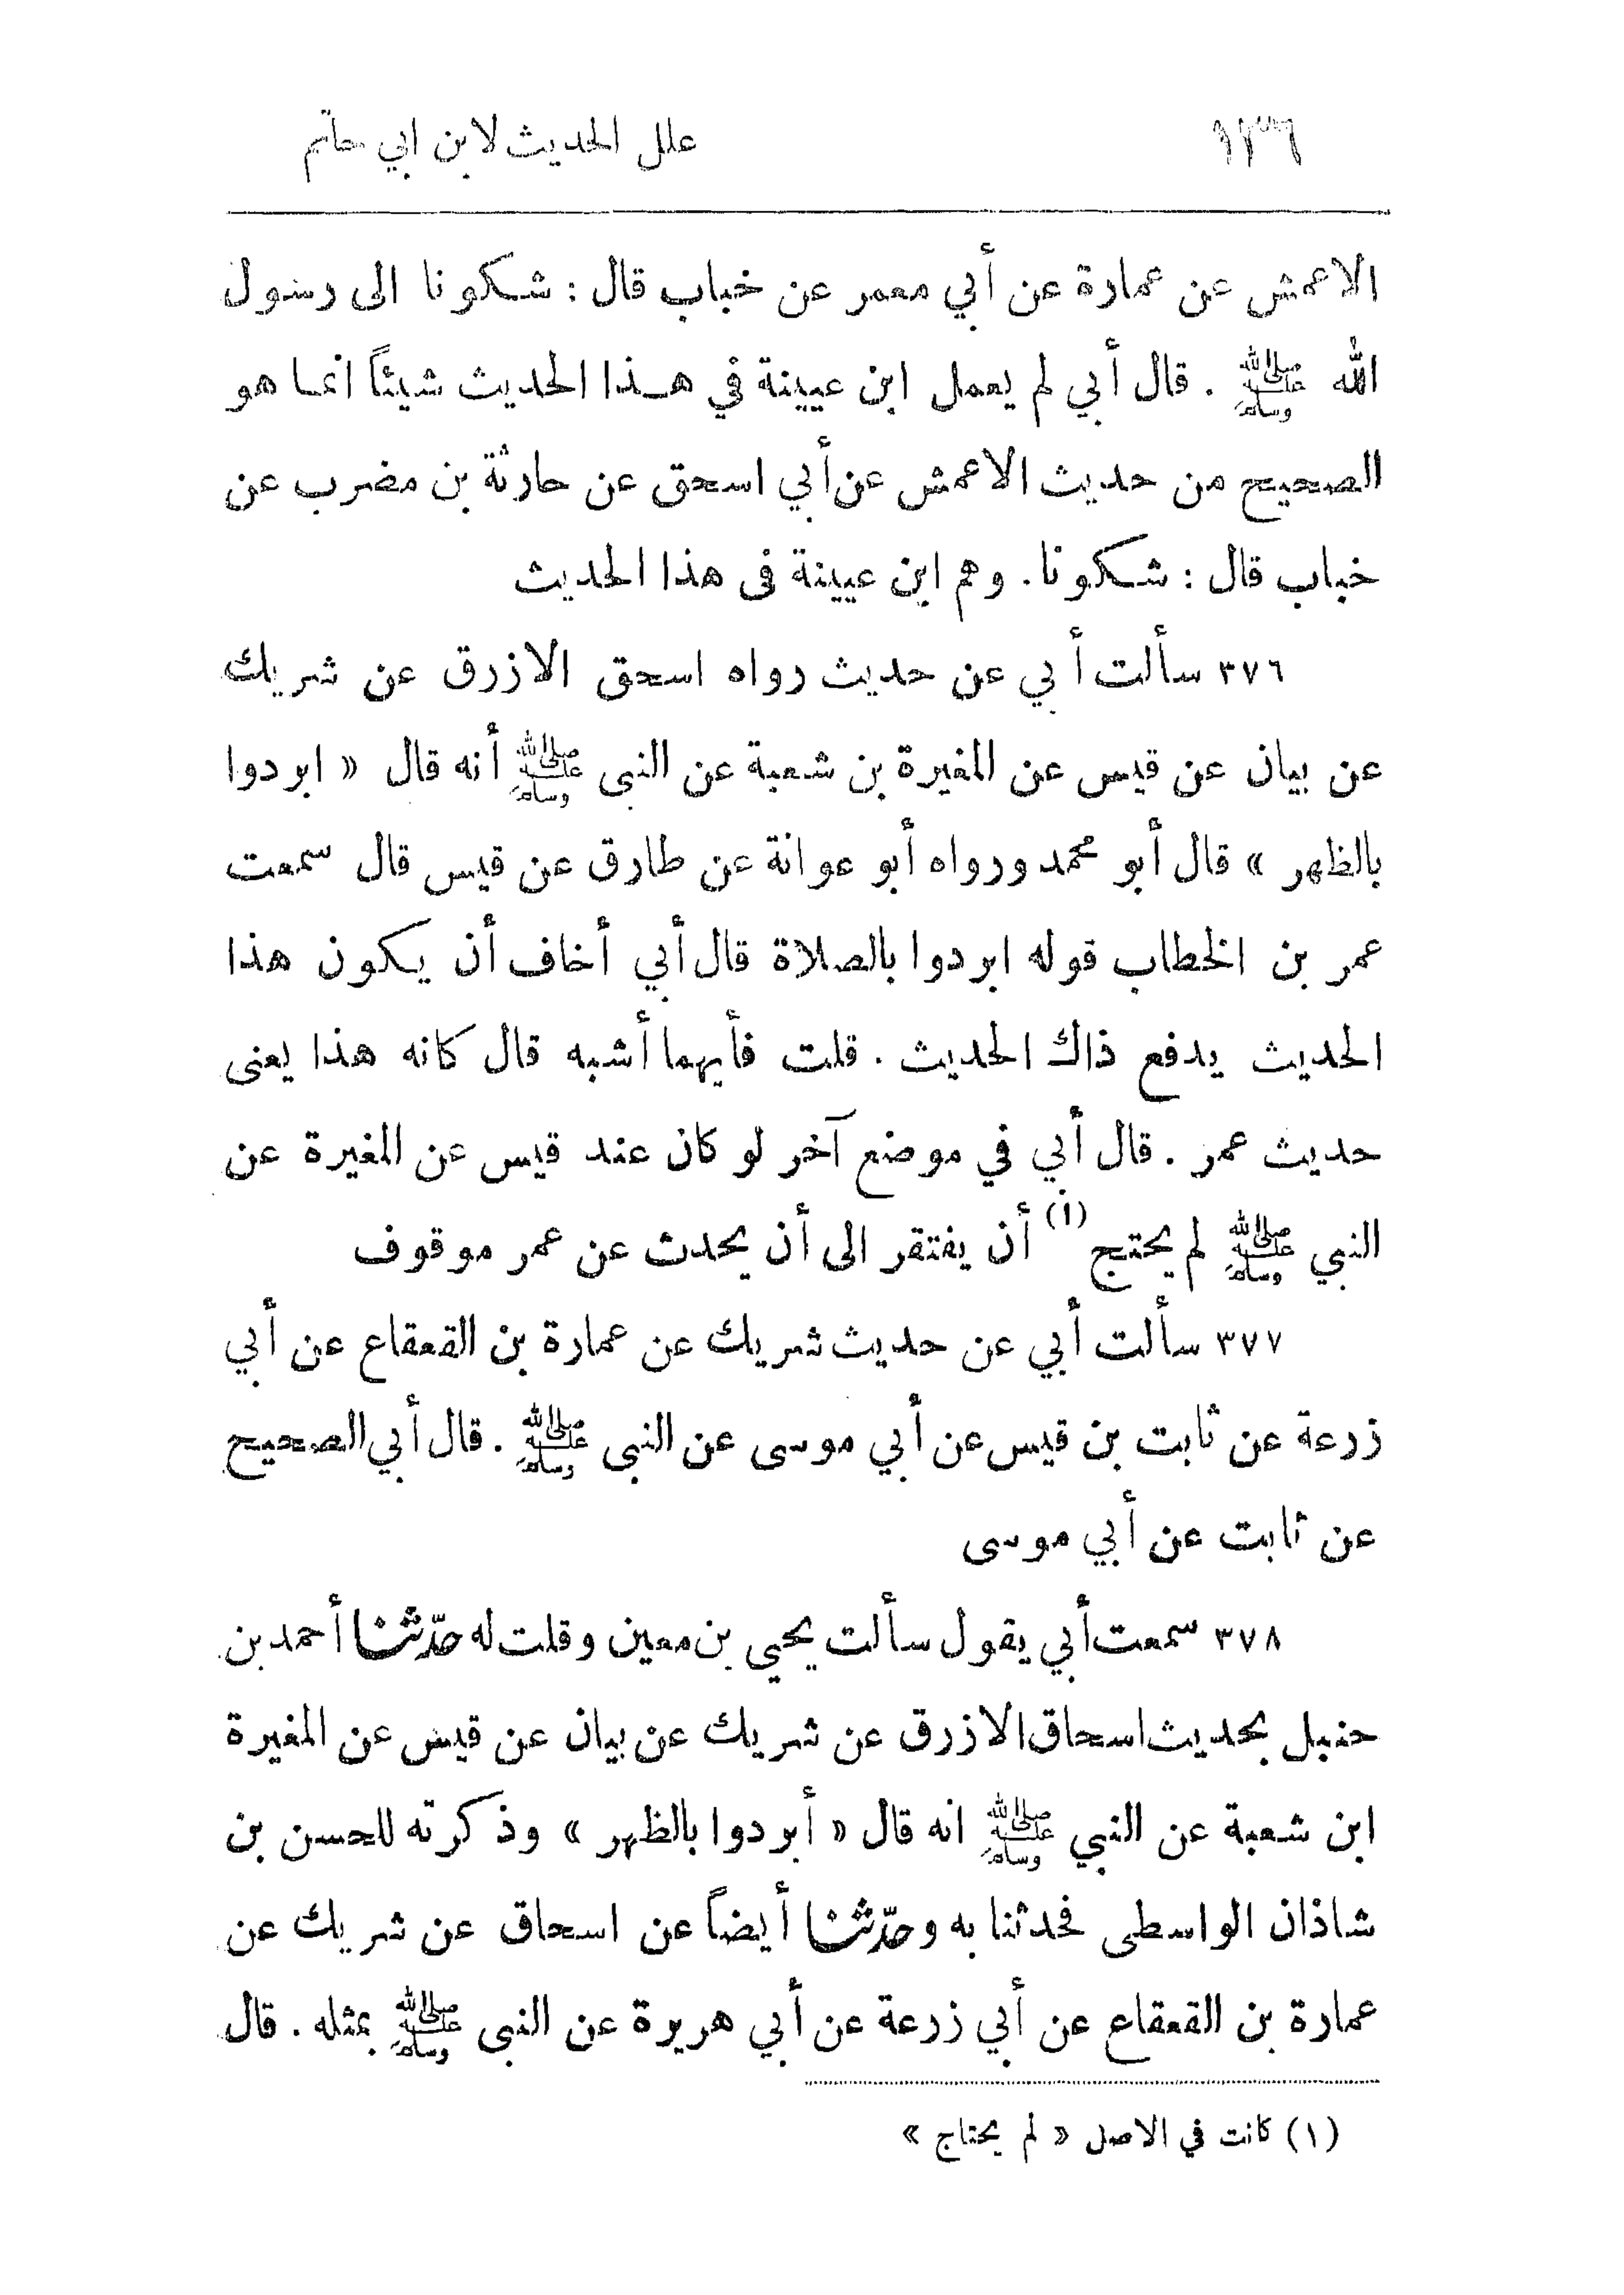 ١٣٦ علل الحديث لابن ابي حاتم
الاعمش عن عمارة عن أبي معمر عن خباب قال : شكونا الى رسول
الله ﷺ . قال أبي لم يعمل ابن عيينة في هذا الحديث شيئاً انما هو
الصحيح من حديث الاعمش عن أبي اسحق عن حارثة بن مضرب عن
خباب قال : شكونا . وهم ابن عيينة فى هذا الحديث
٣٧٦ سألت أبي عن حديث رواه اسحق الازرق عن شريك
عن بيان عن قيس عن المغيرة بن شعبة عن النبى ﷺ أنه قال « ابردوا
بالظهر » قال أبو محمد ورواه أبو عوانة عن طارق عن قيس قال سمعت
عمر بن الخطاب قوله ابردوا بالصلاة قال أبي أخاف أن يكون هذا
الحديث يدفع ذاك الحديث . قلت فأيهما أشبه قال كانه هذا يعنى
حديث عمر . قال أبي في موضع آخر لو كان عند قيس عن المغيرة عن
النبي ﷺ لم يحتج (١) أن يفتقر الى أن يحدث عن عمر موقوف
٣٧٧ سألت أبي عن حديث شريك عن عمارة بن القعقاع عن أبي
زرعة عن ثابت بن قيس عن أبي موسى عن النبى ﷺ . قال أبي الصحيح
عن ثابت عن أبي موسى
٣٧٨ سمعت أبي يقول سألت يحيى بن معين وقلت له حدّثنا أحمد بن
حنبل بحديث اسحاق الازرق عن شريك عن بيان عن قيس عن المغيرة
ابن شعبة عن النبي ﷺ انه قال « أبردوا بالظهر » وذكرته للحسن بن
شاذان الواسطى فحدثنا به وحدّثنا أيضاً عن اسحاق عن شريك عن
عمارة بن القعقاع عن أبي زرعة عن أبي هريرة عن النبى ﷺ بمثله . قال
(١) كانت في الاصل « لم يحتاج »